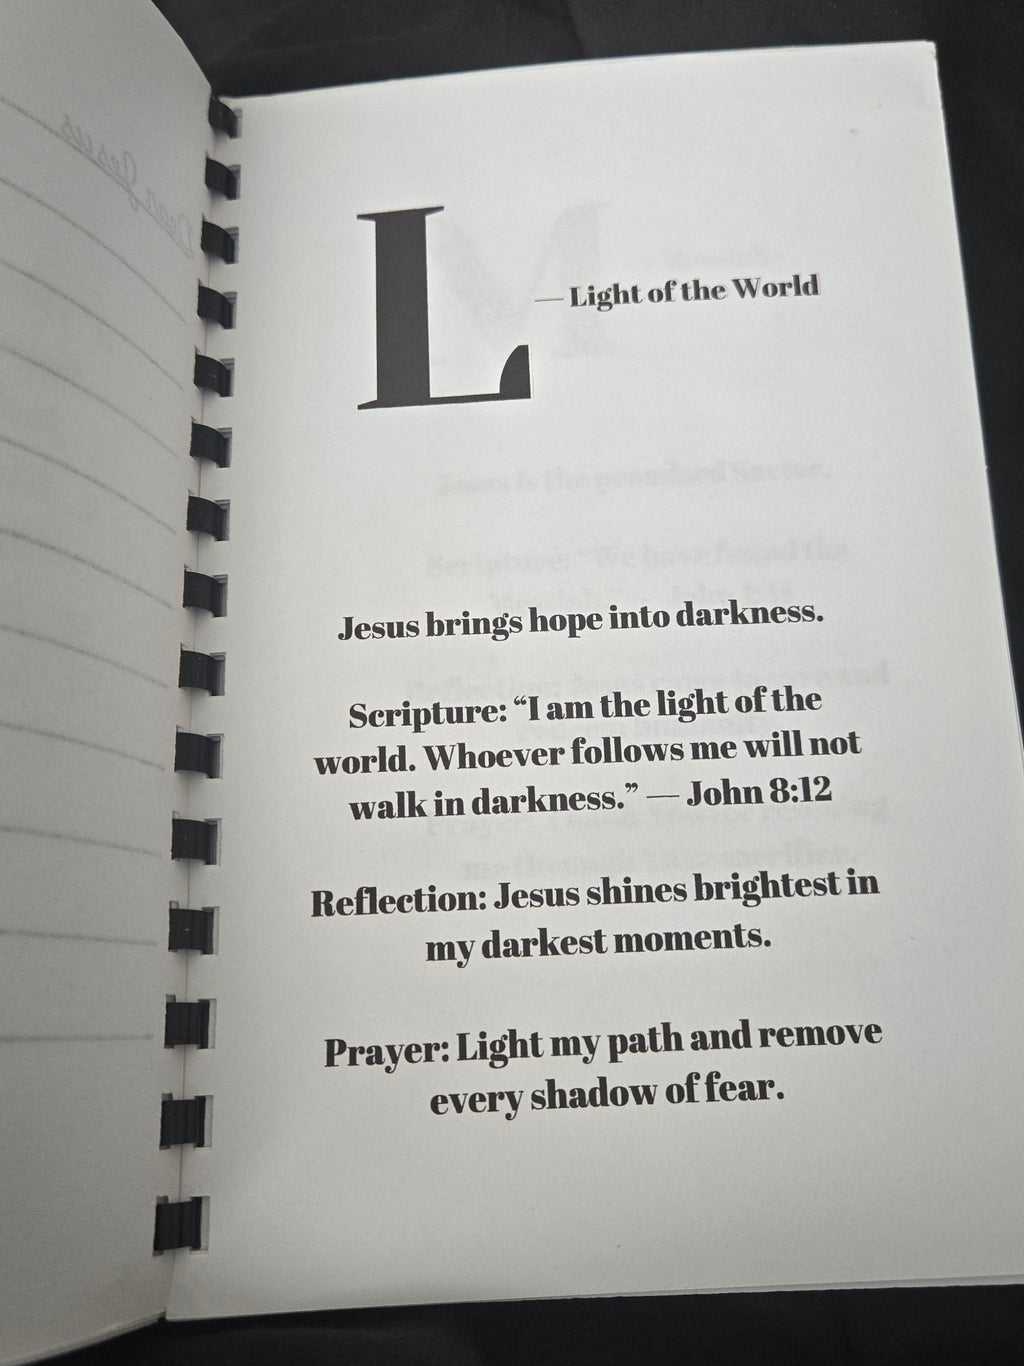 Dear Jesus
L
— Light of the World
Jesus brings hope into darkness.
Scripture: “I am the light of the
world. Whoever follows me will not
walk in darkness.” — John 8:12
Reflection: Jesus shines brightest in
my darkest moments.
Prayer: Light my path and remove
every shadow of fear.